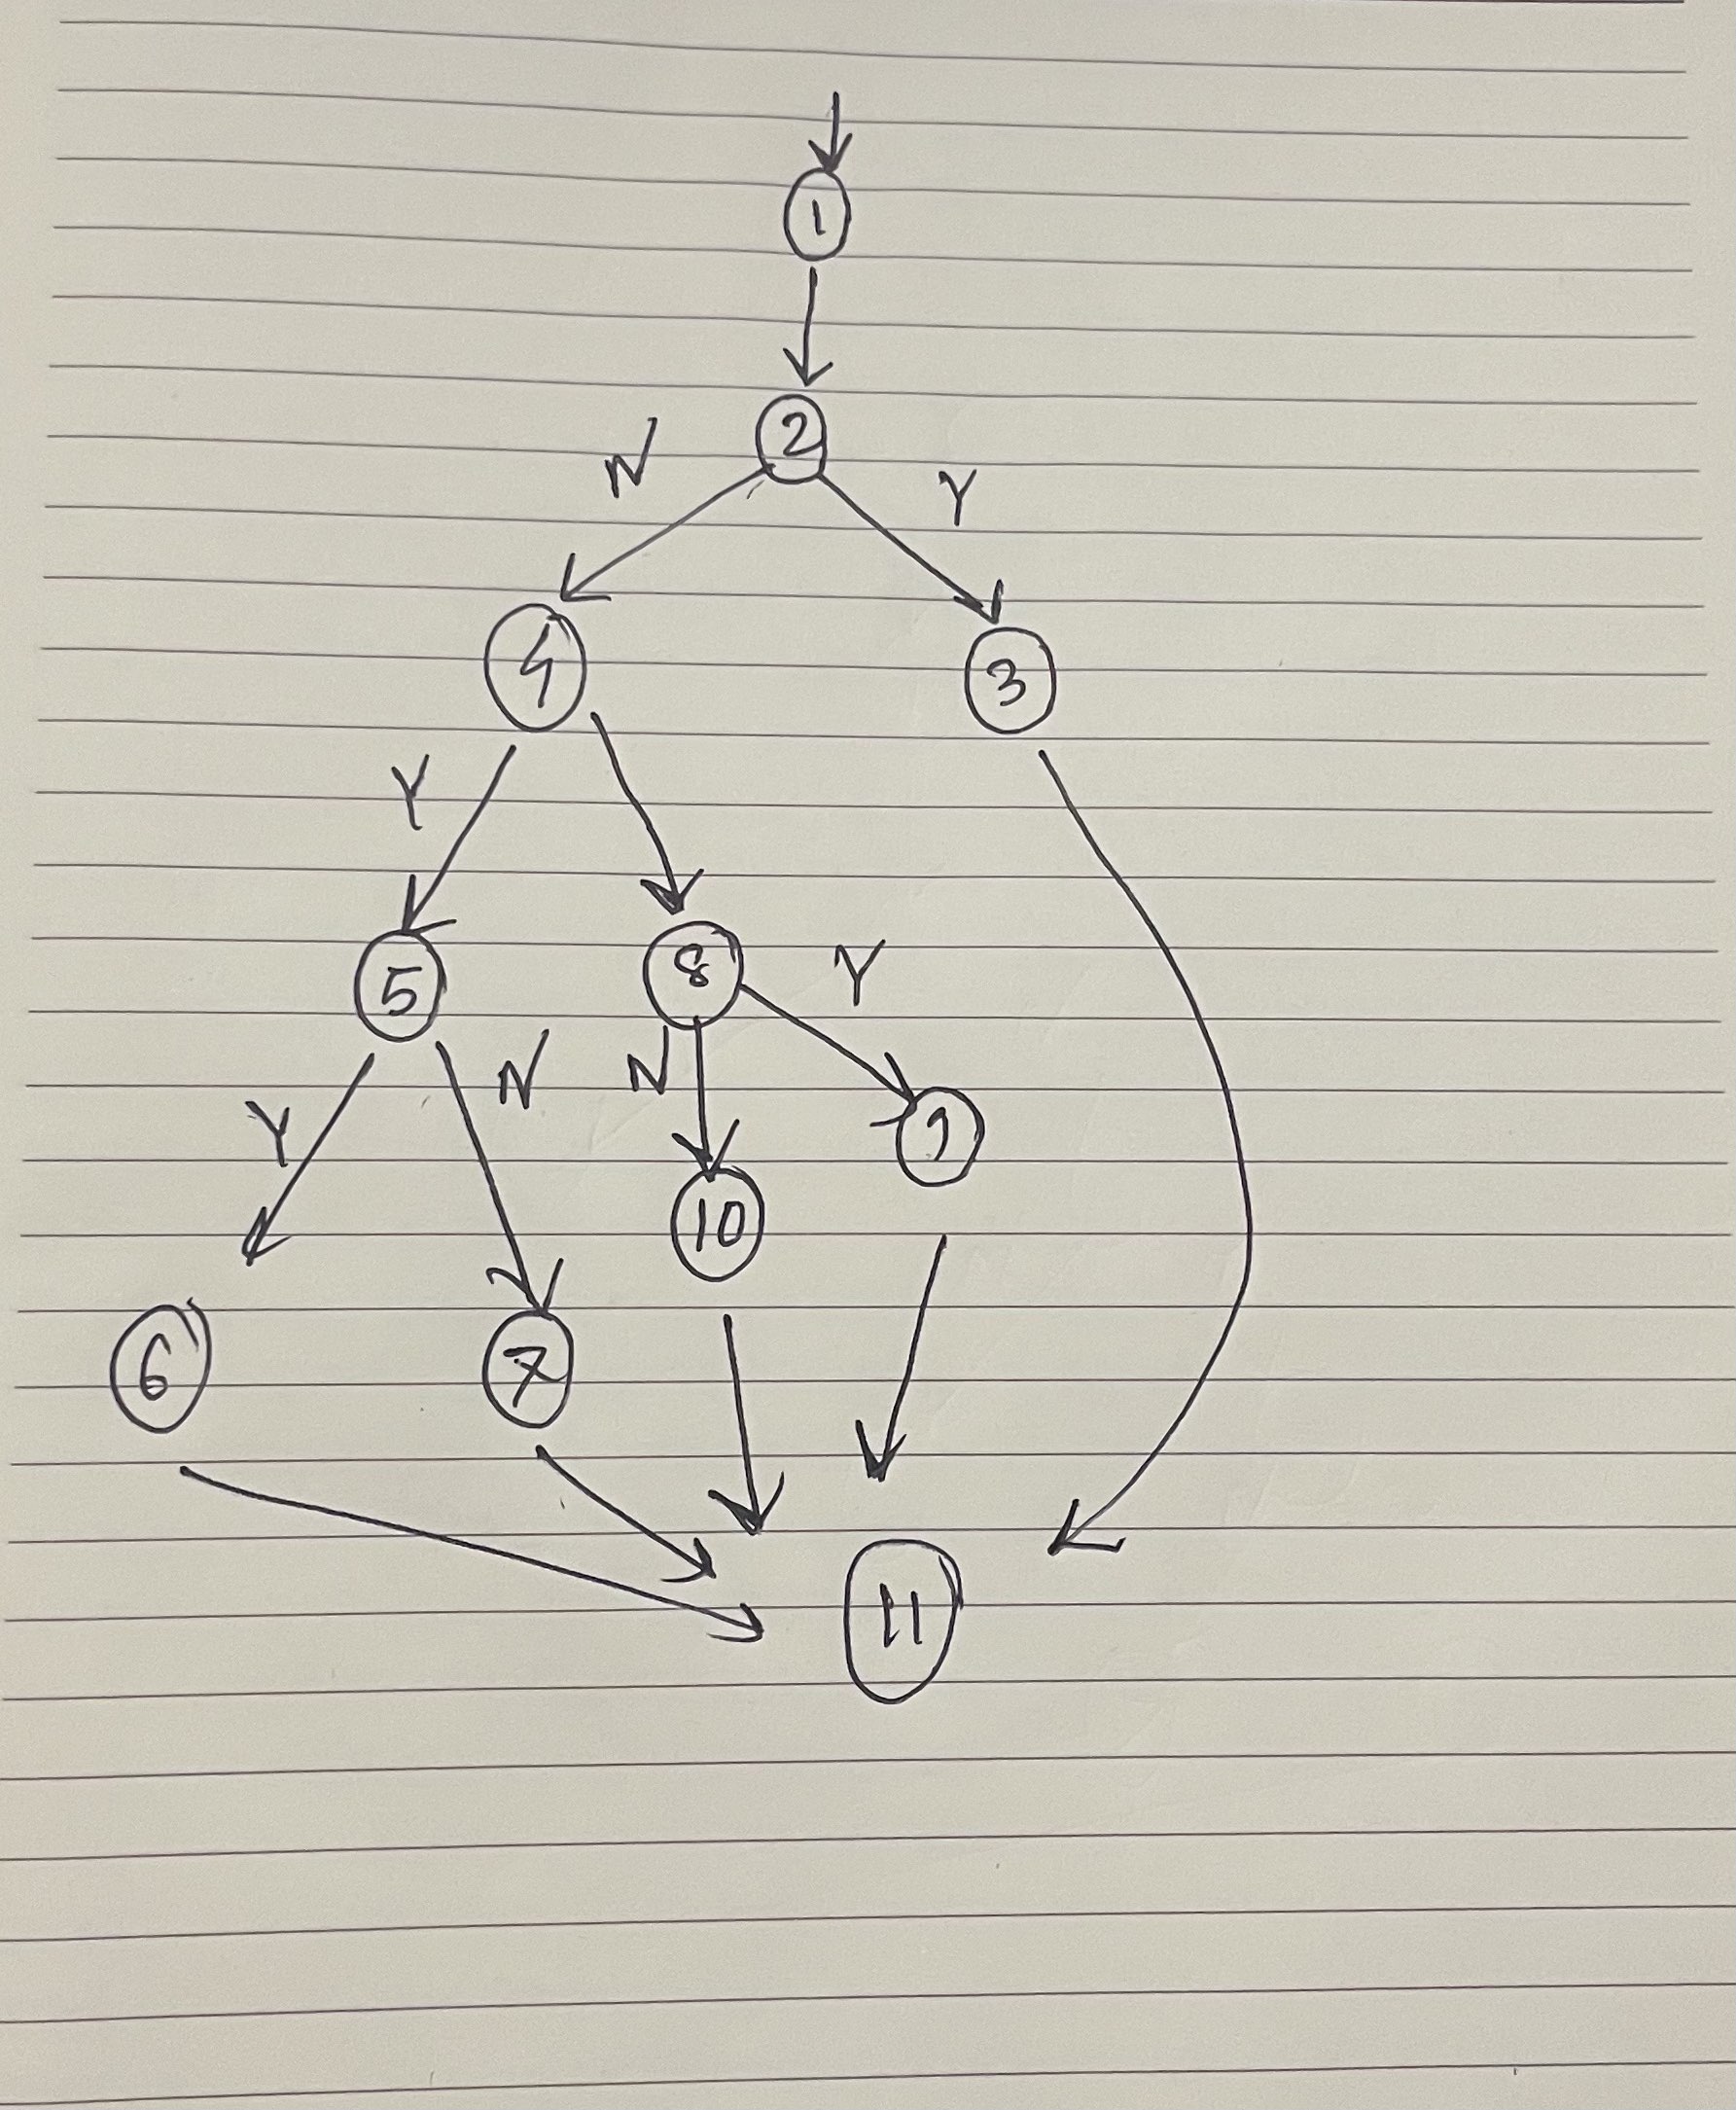 1
2
N Y
4 3
Y
5 8 Y
Y N N
9
10
6 7
11